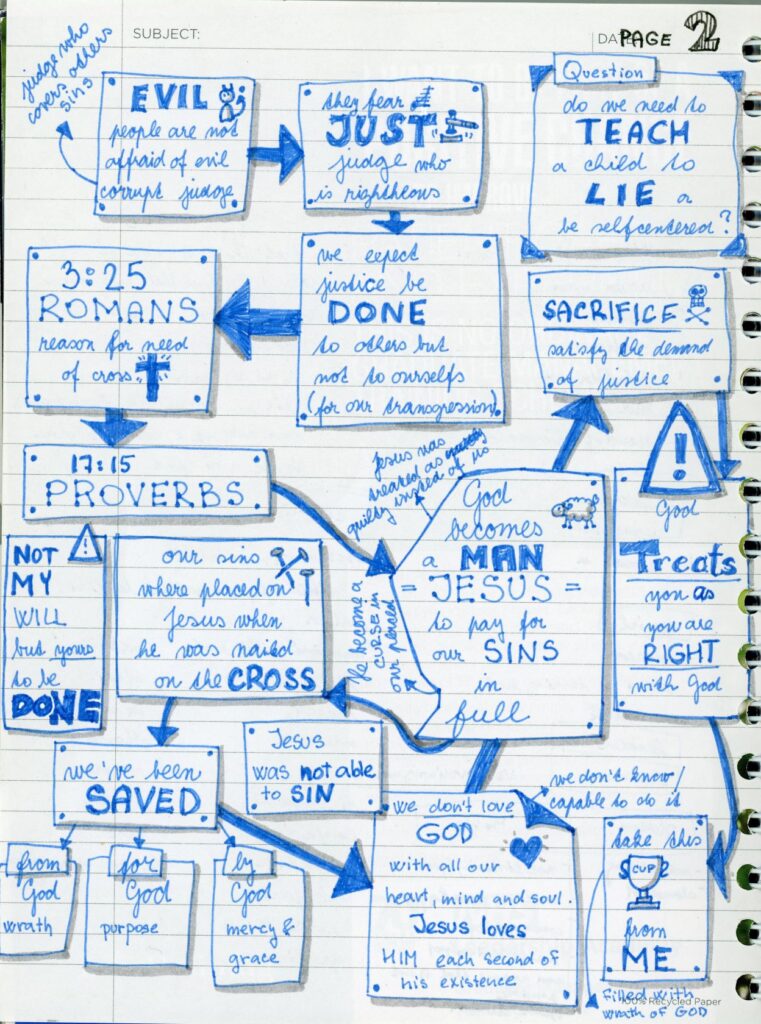 SUBJECT:
DATE
PAGE 2
judge who
covers others
sins
EVIL
people are not
affraid of evil
corrupt judge
they fear
JUST
judge who
is rightheous
Question
do we need to
TEACH
a child to
LIE or
be selfcentered?
3:25
ROMANS
reason for need
of cross
we expect
justice be
DONE
to others but
not to ourselfs
(for our transgression)
SACRIFICE
satisfy the demand
of justice
17:15
PROVERBS
Jesus was
treated as
guilty insted of us
God
becomes
a MAN
= JESUS =
to pay for
our SINS
in
full
He become a
CURSE in
our placed
God
Treats
you as
you are
RIGHT
with God
NOT
MY
WILL
but yours
to be
DONE
our sins
where placed on
Jesus when
he was nailed
on the CROSS
we've been
SAVED
Jesus
was not able
to SIN
from
God
wrath
for
God
purpose
by
God
mercy &
grace
we don't love
GOD
with all our
heart, mind and soul.
Jesus loves
HIM each second of
his existence
we don't know/
capable to do it
take this
CUP
from
ME
filled with
wrath of GOD
100% Recycled Paper